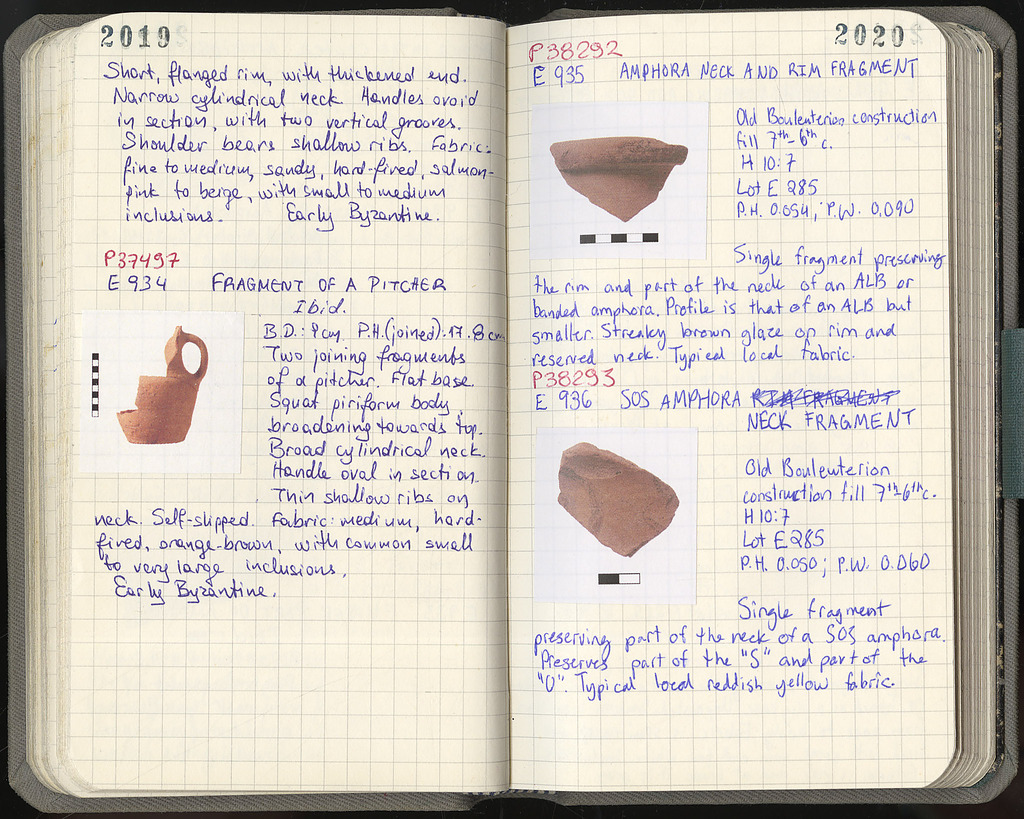 2019
Short, flanged rim, with thickened end.
Narrow cylindrical neck. Handles ovoid
in section, with two vertical grooves.
Shoulder bears shallow ribs. Fabric:
fine to medium, sandy, hard-fired, salmon-
pink to beige, with small to medium
inclusions. Early Byzantine.
P37497
E 934 FRAGMENT OF A PITCHER
Ibid.
B.D.: 9cm. P.H.(joined). 17.8cm
Two joining fragments
of a pitcher. Flat base.
Squat piriform body
broadening towards top.
Broad cylindrical neck.
Handle oval in section.
Thin shallow ribs on
neck. Self-slipped. Fabric: medium, hard-
fired, orange-brown, with common small
to very large inclusions.
Early Byzantine.
2020
P38292
E 935 AMPHORA NECK AND RIM FRAGMENT
Old Bouleuterion construction
fill 7th-6th c.
H 10:7
Lot E 285
P.H. 0.054; P.W. 0.090
Single fragment preserving
the rim and part of the neck of an ALB or
banded amphora. Profile is that of an ALB but
smaller. Streaky brown glaze on rim and
reserved neck. Typical local fabric.
P38293
E 936 SOS AMPHORA RIM FRAGMENT
NECK FRAGMENT
Old Bouleuterion
construction fill 7th-6th c.
H 10:7
Lot E 285
P.H. 0.050; P.W. 0.060
Single fragment
preserving part of the neck of a SOS amphora.
Preserves part of the "S" and part of the
"O". Typical local reddish yellow fabric.